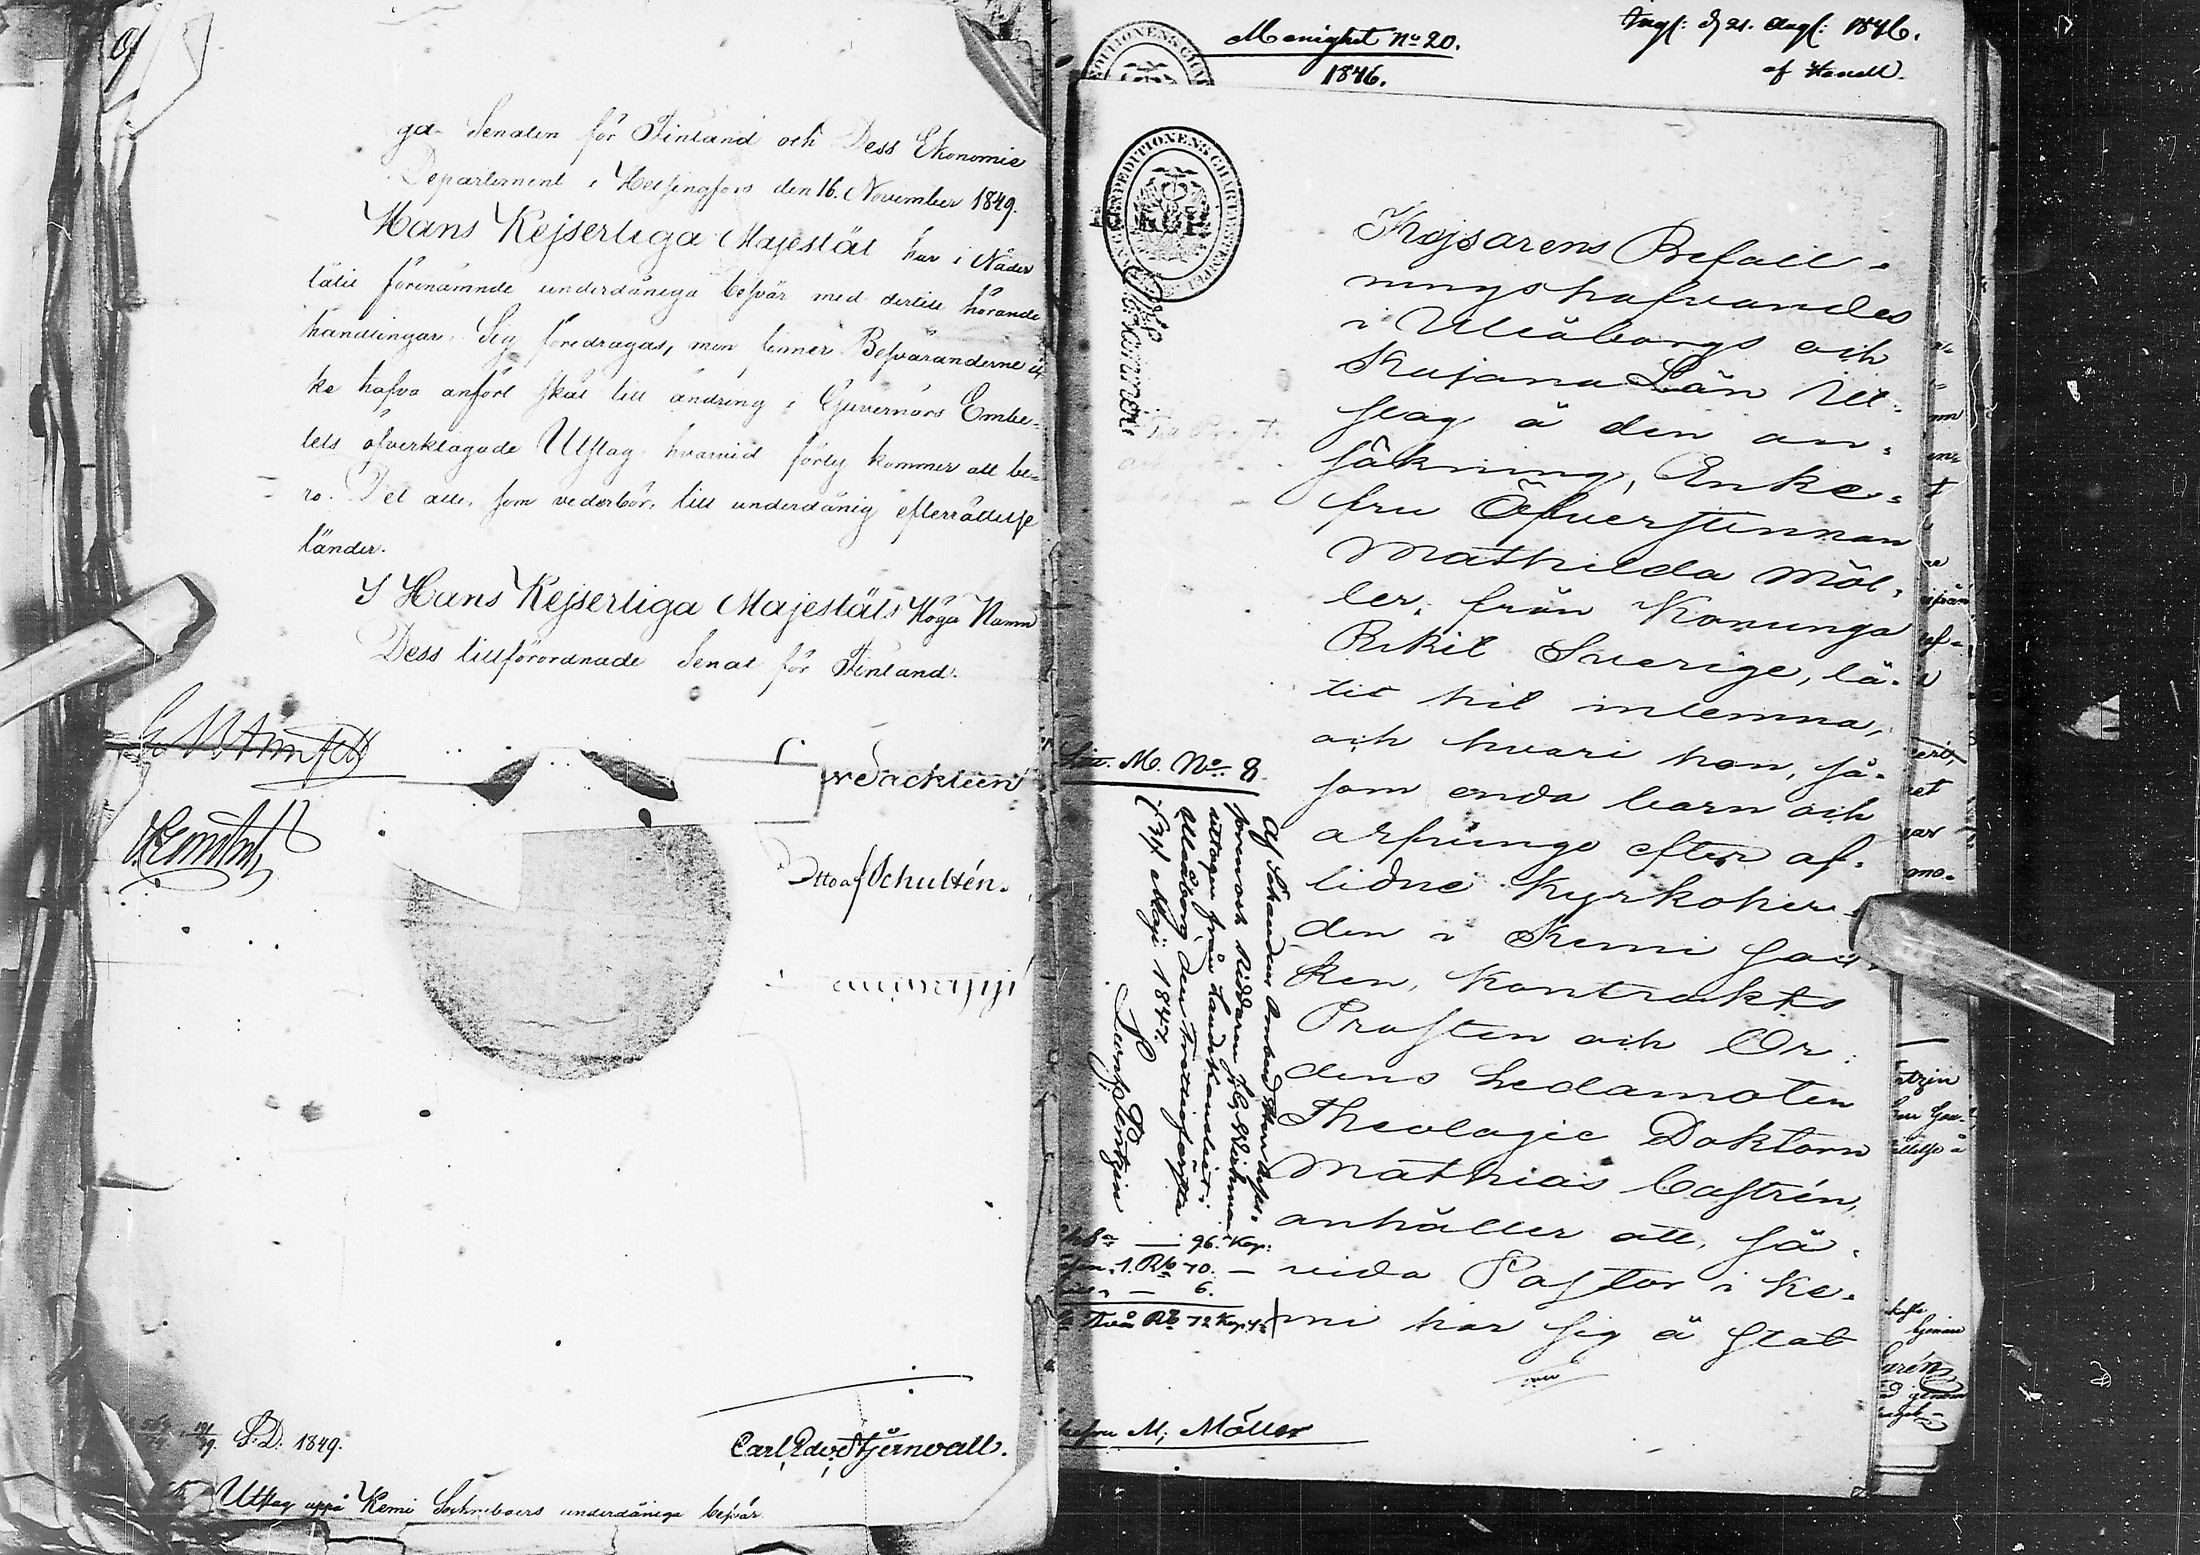 ga Senaten för Finland och Dess Ekonomie
Departement i Helsingfors den 16. November 1849.
Hans Kejserliga Majestät har i Nåder
låtit förenämnde underdåniga besvär med dertill hörande
handlingar, Sig föredragas, men finner Besväranderne ic
ke hafva anfört skäl till ändring i Guvernörs Embe=
tets öfverklagade Utslag hvarvid förty kommer att be=
ro. Det alle, som vederbör, till underdånig efterrättelse
länder.
I Hans Kejserliga Majestäts Höga Namn
Dess tillförordnade Senat för Finland.
Otto af Schultén.
S.D. 1849.
Carl Edv. Stjernvall.
Utslag uppå Kemi Sockneboers underdåniga besvär
No 20.
1846.
1846.
EXPEDITIONENS CHARTA
Kejsarens Befall=
ningshafvandes
i Uleåborgs och
Kajana Län Ut=
slag å den an=
sökning, Enke=
fru Öfverstinnan
Mathilda Möl=
ler, från Konunga
Riket Sverige, lå=
tit hit inlemna,
och hvari hon, så=
som enda barn och
arfvinge efter af=
lidne Kyrkoher=
den i Kemi Soc
ken, Kontrakts
Prosten och Or=
dens Ledamoten
Theologie Doktorn
Mathias Castrén,
anhåller att, så=
vida Pastor i Ke=
mi har sig å Stat
Litt. M. No 8.
Af Sökandens Ombud
utlagen från Landskansliet i
Uleåborg den Trettioförsta
(31) Maji 1847.
96. Kop:
1. Rb 70. —
6.
Två Rb 72 Kop. Sr
M. Möller